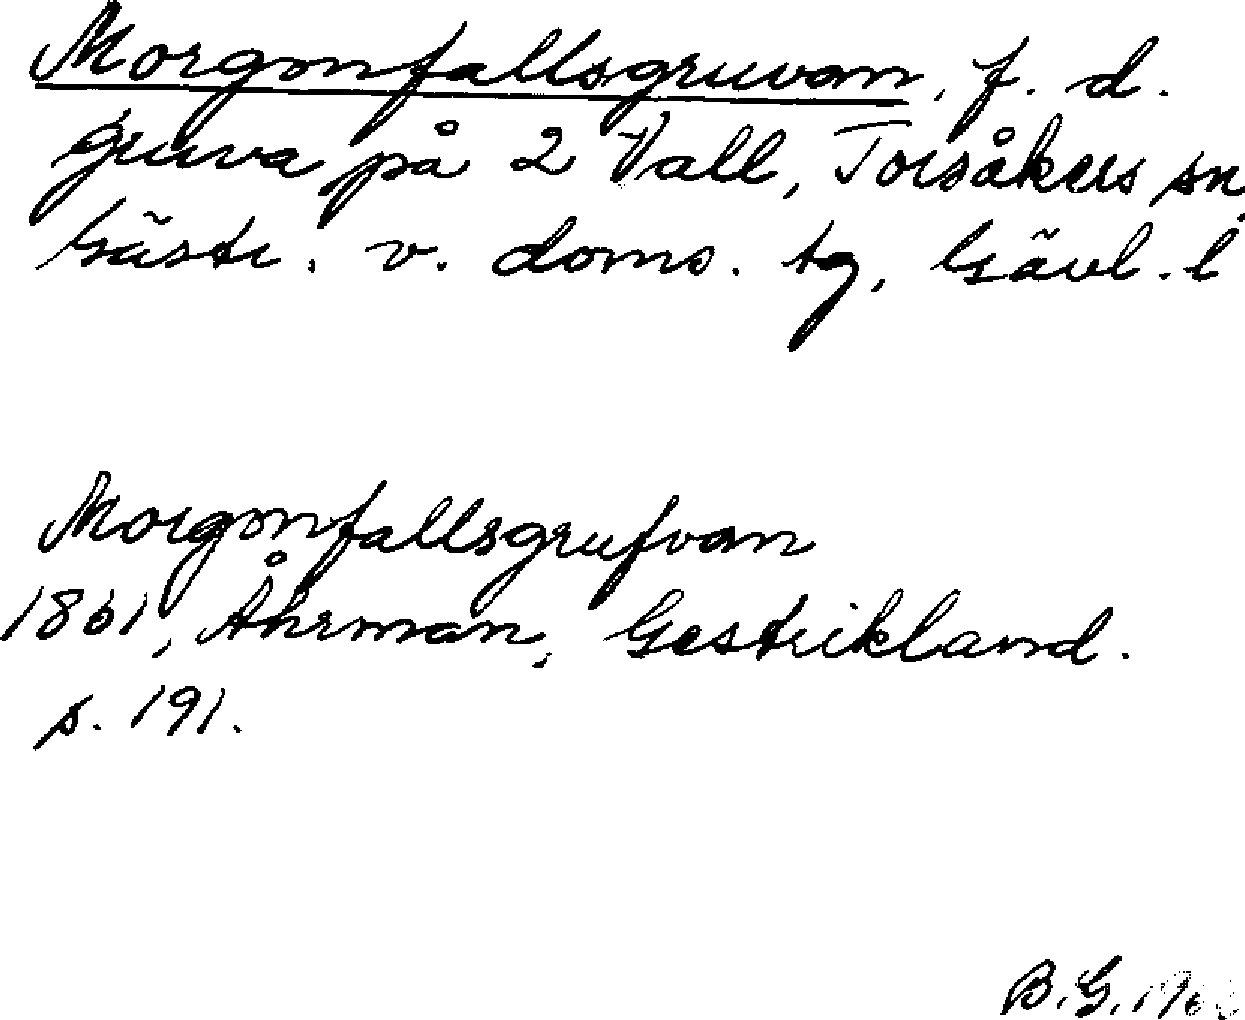 Morgonfallsgruvan, f. d.
gruva på 2 Vall, Torsåkers sn,
Gästr. v. doms. tg, Gävl. l
Morgonfallsgrufvan
1861, Åhrman, Gestrikland.
s. 191.
B.G.